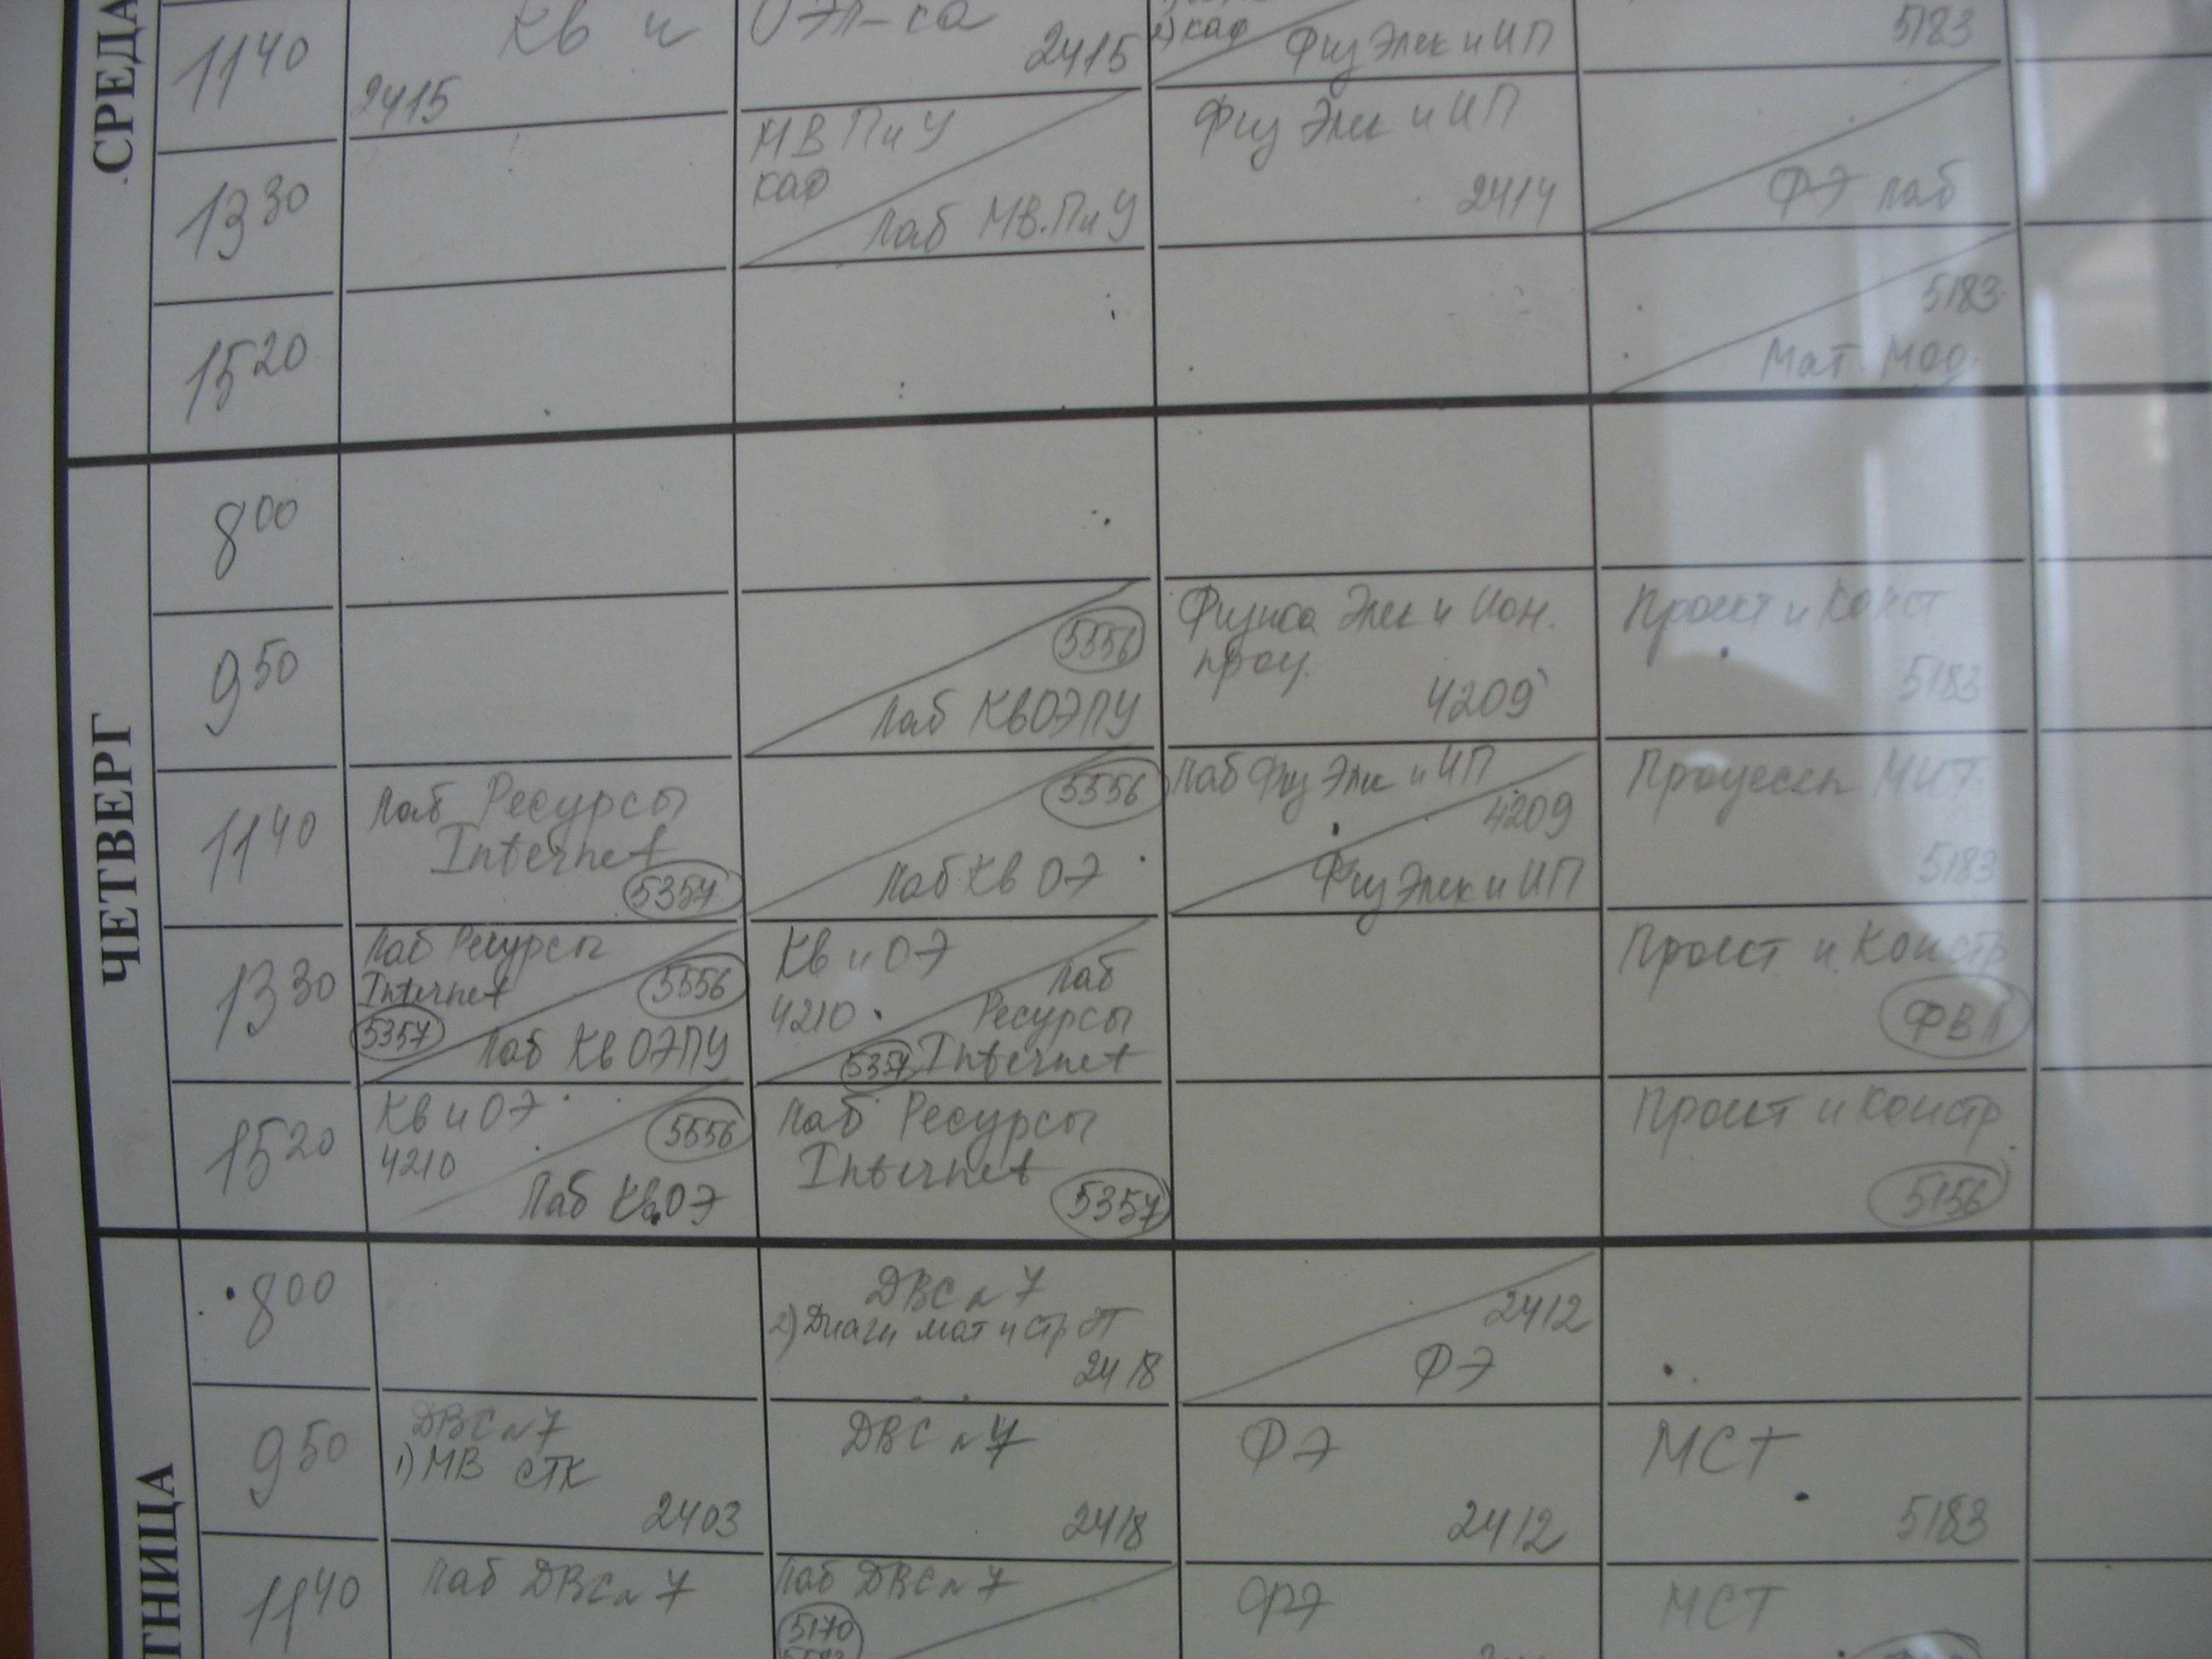 СРЕДА
11 40
Кв и ОЭл-са
2415
2415
2) каф
Физ Элек и ИП
5183
13 30
МВ ПиУ
каф
Лаб МВ.ПиУ
Физ Элек и ИП
2414
ФЭ лаб
15 20
5183
Мат. Мод.
ЧЕТВЕРГ
8 00
9 50
5556
Лаб КвОЭПУ
Физика Элек и Ион.
проц.
4209
Проект и Конст
5183
11 40
Лаб Ресурсы
Internet
5357
5556
Лаб Кв ОЭ
Лаб Физ Элек и ИП
4209
Физ Элек и ИП
Процессы МИТ
5183
13 30
Лаб Ресурсы
Internet
5357
5556
Лаб Кв ОЭПУ
Кв и ОЭ
4210
Лаб
Ресурсы
5357 Internet
Проект и Констр
ФВЛ
15 20
Кв и ОЭ
4210
5556
Лаб Кв.ОЭ
Лаб Ресурсы
Internet
5357
Проект и Констр
5156
ТНИЦА
8 00
ДВС л 7
2) Диагн мат и стр ЭТ
2418
2412
ФЭ
9 50
ДВС л 7
1) МВ СТК
2403
ДВС л 7
2418
ФЭ
2412
МСТ
5183
11 40
Лаб ДВС л 7
Лаб ДВС л 7
5170
ФЭ
МСТ